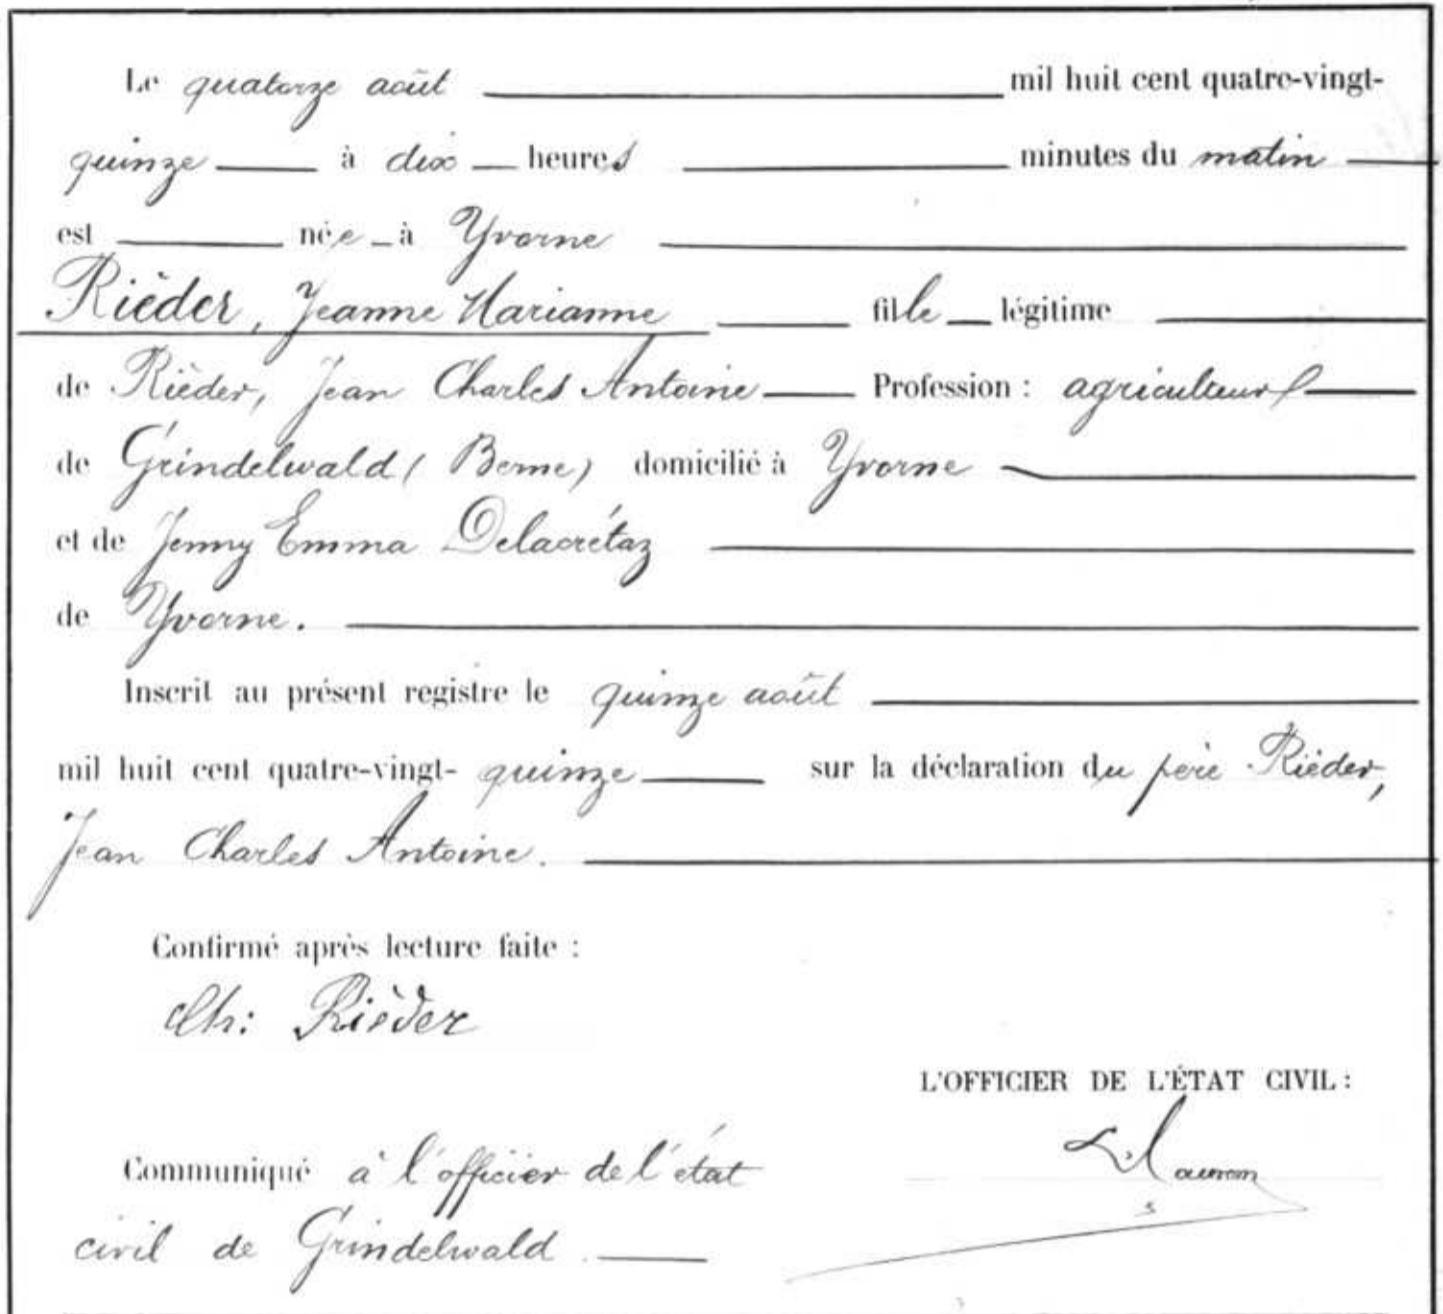 Le quatorze août mil huit cent quatre-vingt-
quinze à dix heures minutes du matin
est née à Yvorne
Rieder, Jeanne Marianne fille légitime
de Rieder, Jean Charles Antoine Profession : agriculteur
de Grindelwald (Berne) domicilié à Yvorne
et de Jenny Emma Delacrétaz
de Yvorne.
Inscrit au présent registre le quinze août
mil huit cent quatre-vingt- quinze sur la déclaration du père Rieder,
Jean Charles Antoine.
Confirmé après lecture faite :
Ch: Rieder
L'OFFICIER DE L'ÉTAT CIVIL :
Communiqué à l'officier de l'état
civil de Grindelwald